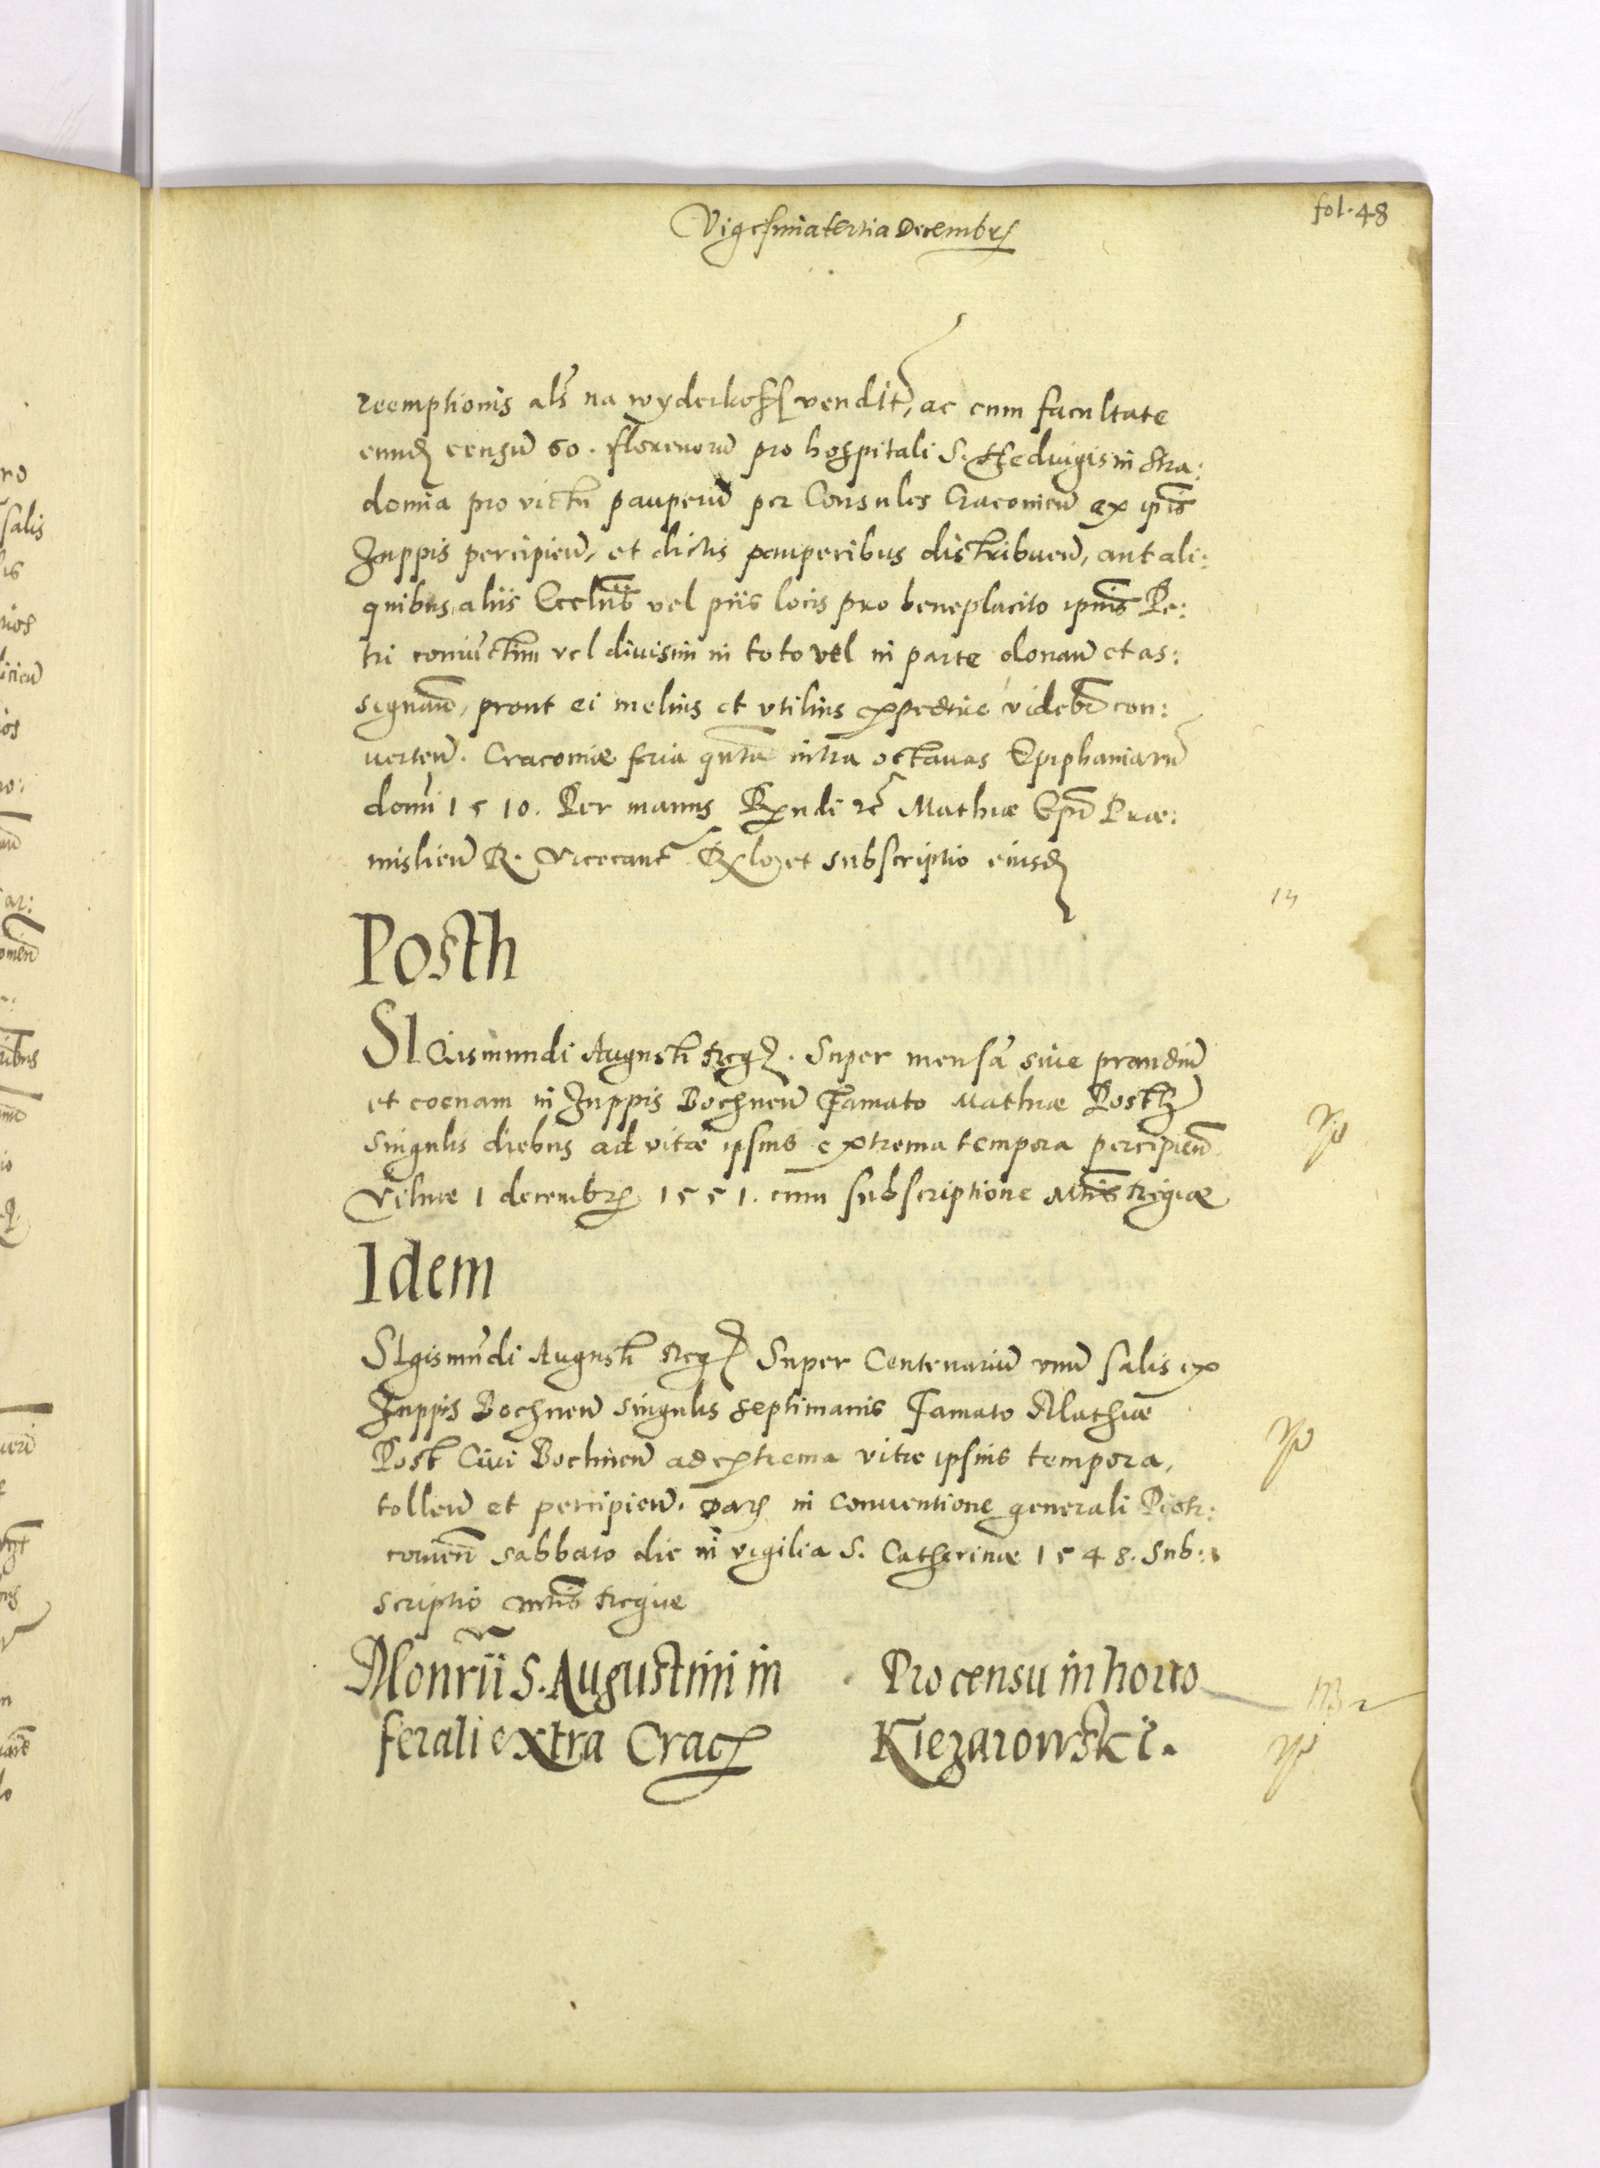 fol. 48
Vigesimatertia Decembr
reemptionis als na wyderkoff vendit, ac cum facultate
eund censu 60. florenorū pro hospitali S. Hedvigis in Stra:
domia pro victu pauperū per Consules Cracovien ex ipis
Zuppis percipien, et dictis pauperibus distribuen, aut ali:
quibus aliis Ecclīis vel piis locis pro beneplacito ipius Pe:
tri coniūctim vel divisim in toto vel in parte donan et as:
signan, prout ei melius et utilius expedire videbr con:
verten. Cracoviæ feria qnta intra octavas Epiphaniarū
domi 1510. Per manus Rndi Mathiæ Epi Præ:
mislien R. Vicecanc et subscriptio eiusd
13
Posth
SIGismundi Augusti Reg. Super mensā sive prandiū
et coenam in Zuppis Bochnen Famato Mathiæ Posth
singulis diebus ad vitæ ipsius extrema tempora percipien
Vilnæ 1 decembr 1551. cum subscriptione Mtis Regiæ
Idem
SIgismūdi Augusti Reg Super Centenariū unū salis ex
Zuppis Bochnen singulis septimanis Famato Mathiæ
Post Civi Bochnen ad extrema vitæ ipsius tempora,
tollen et percipien. Dat in Conventione generali Piotr:
covien sabbato die in vigilia S. Catherinæ 1548. Sub:
scriptio Mtis Regiæ
Monrii S. Augustini in
ferali extra Crac
Pro censu in horto
Kiezarowski.